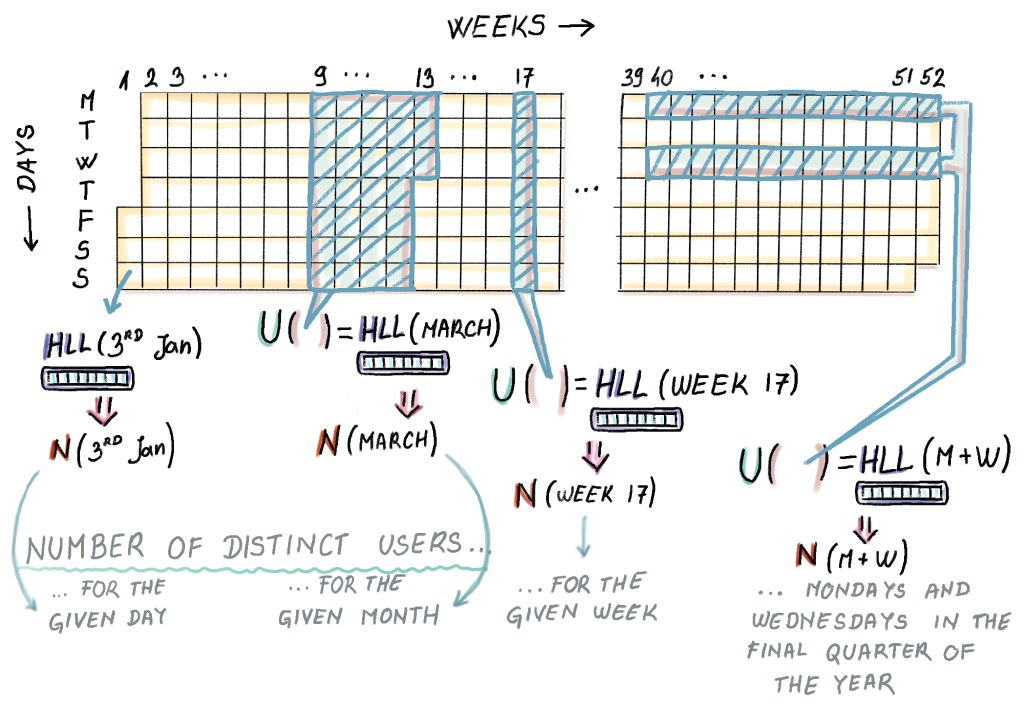 WEEKS →
1 2 3 ... 9 ... 13 ... 17 39 40 ... 51 52
← DAYS
M
T
W
T
F
S
S
...
HLL (3RD Jan)
N (3RD Jan)
U ( ) = HLL (MARCH)
N (MARCH)
U ( ) = HLL (WEEK 17)
N (WEEK 17)
U ( ) = HLL (M+W)
N (M+W)
NUMBER OF DISTINCT USERS...
... FOR THE
GIVEN DAY
... FOR THE
GIVEN MONTH
... FOR THE
GIVEN WEEK
... MONDAYS AND
WEDNESDAYS IN THE
FINAL QUARTER OF
THE YEAR